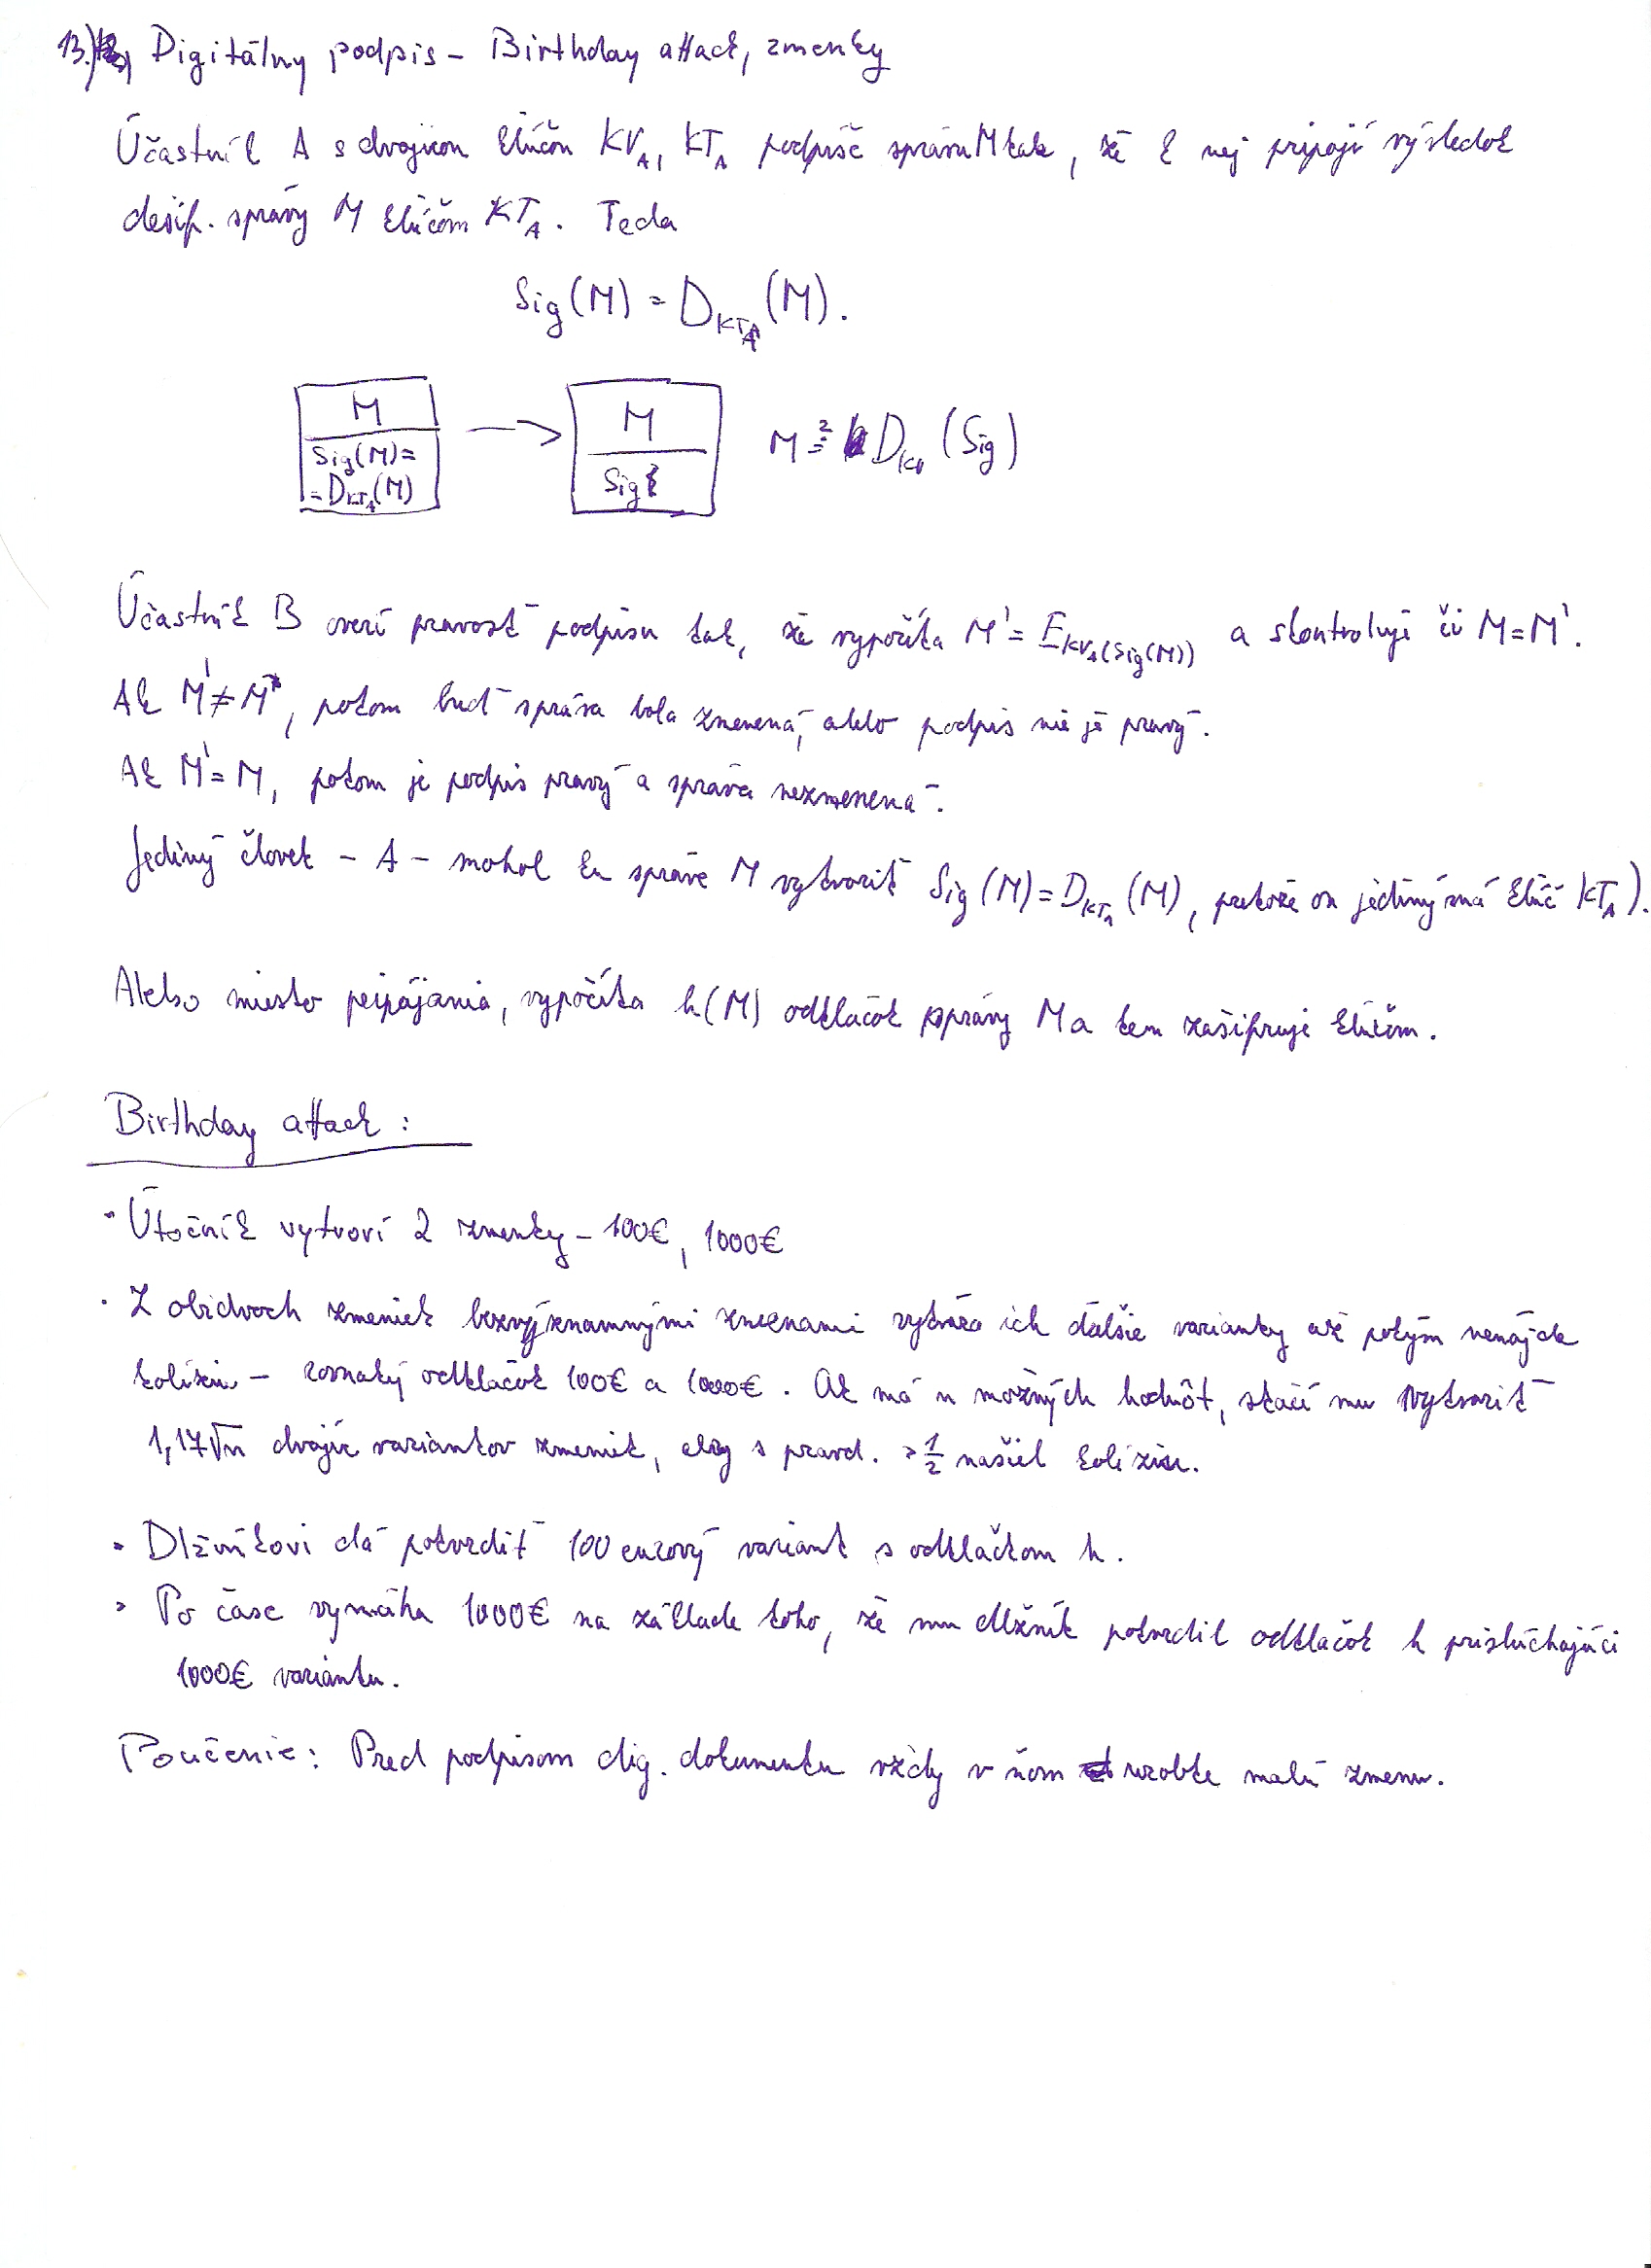 13.) Digitálny podpis - Birthday attack, zmenky
Účastník A s dvojicou kľúčov KV_A, KT_A podpíše správu M tak, že k nej pripojí výsledok
dešif. správy M kľúčom KT_A. Teda
Sig(M) = D_{KT_A}(M).
M
Sig(M)=
=D_{KT_A}(M)
→
M
Sig
M ≟ D_{KV}(Sig)
Účastník B overí pravosť podpisu tak, že vypočíta M' = E_{KV_A(Sig(M))} a skontroluje či M=M'.
Ak M' ≠ M, potom buď správa bola zmenená, alebo podpis nie je pravý.
Ak M' = M, potom je podpis pravý a správa nezmenená.
Jediný človek - A - mohol ku správe M vytvoriť Sig(M) = D_{KT_A}(M), pretože on jediný má kľúč KT_A).
Alebo miesto pripájania, vypočíta h(M) odtlačok správy M a ten zašifruje kľúčom.
Birthday attack:
• Útočník vytvorí 2 zmenky - 100€, 1000€
• Z obidvoch zmeniek bezvýznamnými zmenami vytvára ich ďalšie varianty až pokým nenájde
kolíziu - rovnaký odtlačok 100€ a 1000€. Ak má n možných hodnôt, stačí mu vytvoriť
1,17√n dvojíc variantov zmeniek, aby s pravd. > 1/2 našiel kolíziu.
• Dlžníkovi dá potvrdiť 100 eurový variant s odtlačkom h.
• Po čase vymáha 1000€ na základe toho, že mu dlžník potvrdil odtlačok h prislúchajúci
1000€ variantu.
Poučenie: Pred podpisom dig. dokumentu vždy v ňom urobte malú zmenu.